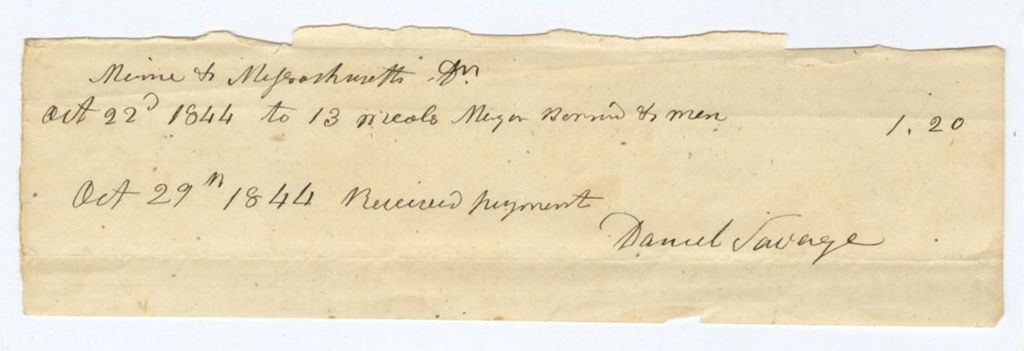 Maine & Massachusetts Dr
Oct 22d 1844 to 13 meals Mayor & men 1.20
Oct 29th 1844 Received payment
Daniel Savage